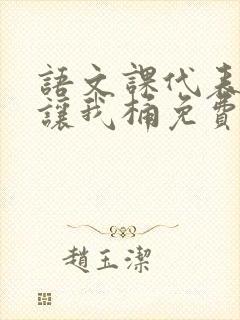 語文課代表
讓我桶免費
趙玉潔